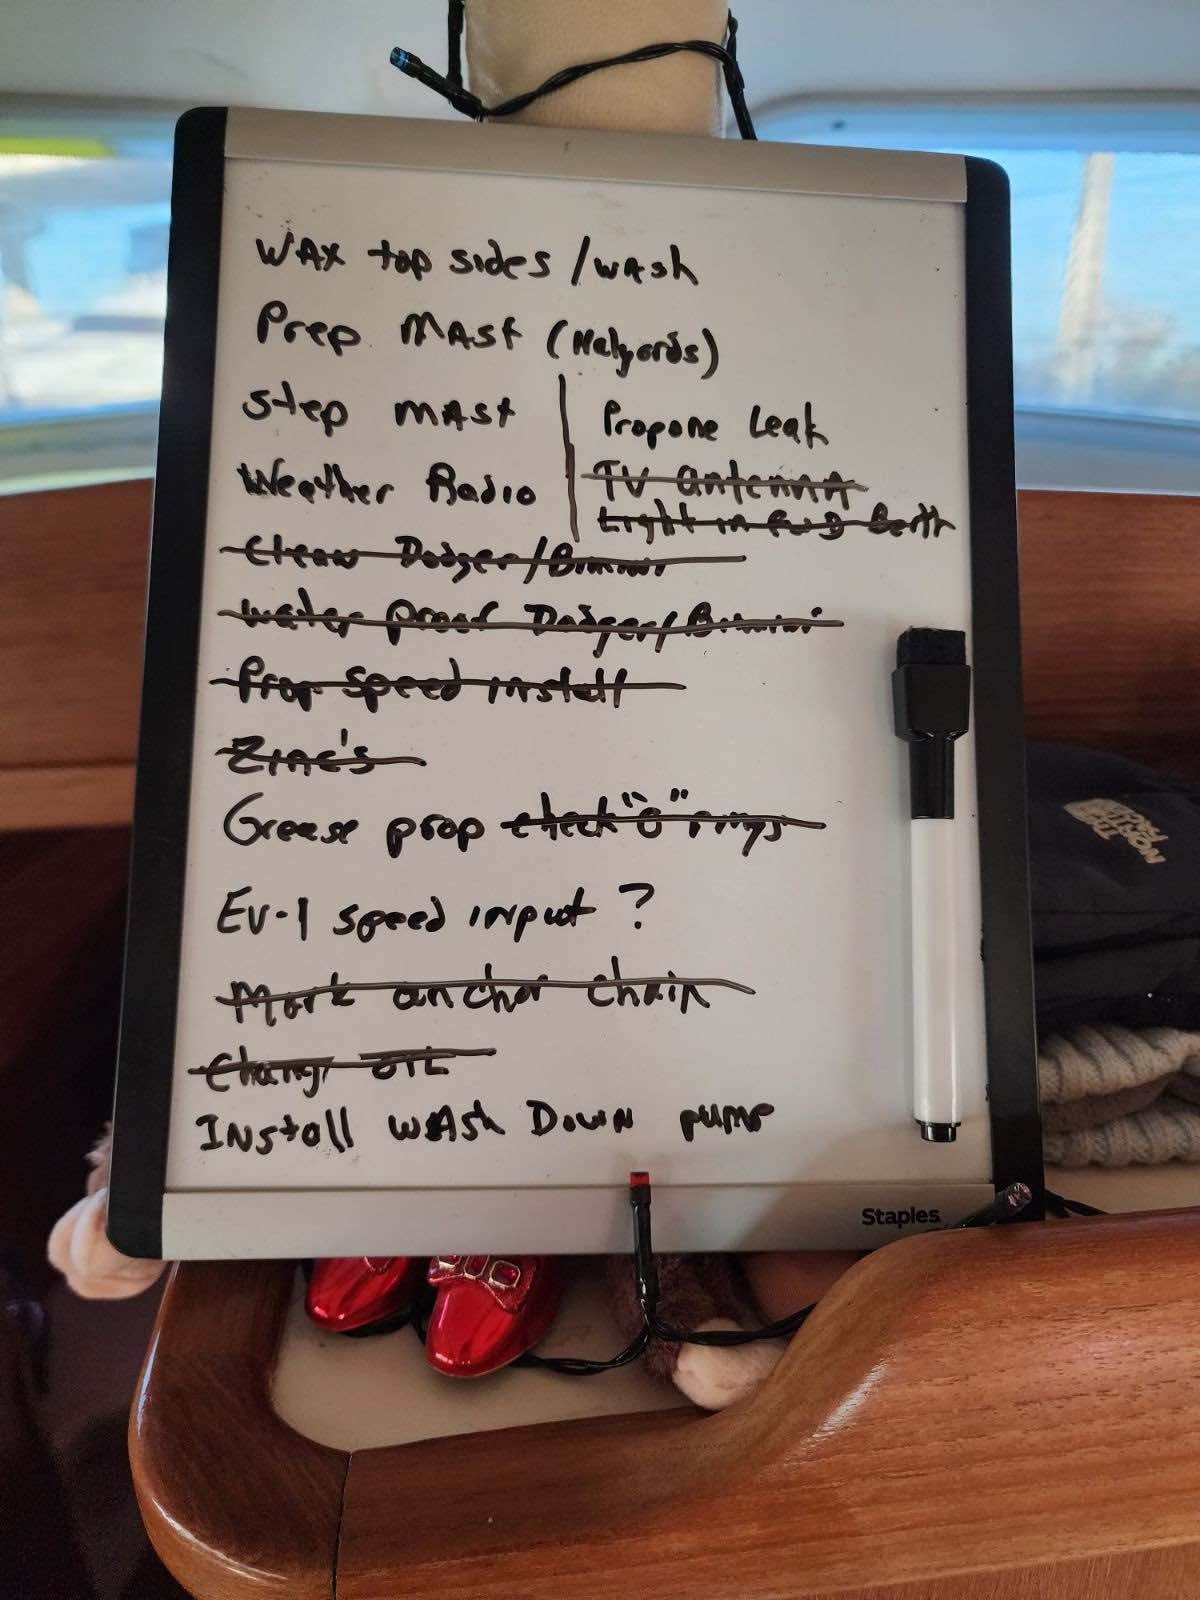 WAX top sides / WASh
Prep MAST (Halyards)
Step MAST
Weather Radio
Propane Leak
TV antenna
Light in FWD Berth
Clean Dodger/Bimini
Water proof Dodger/Bimini
Prop Speed install
Zinc's
Grease prop check "O" rings
EV-1 speed input ?
Mark anchor chain
Change OIL
INstall WASh DOWN pump
Staples
THE NORTH FACE